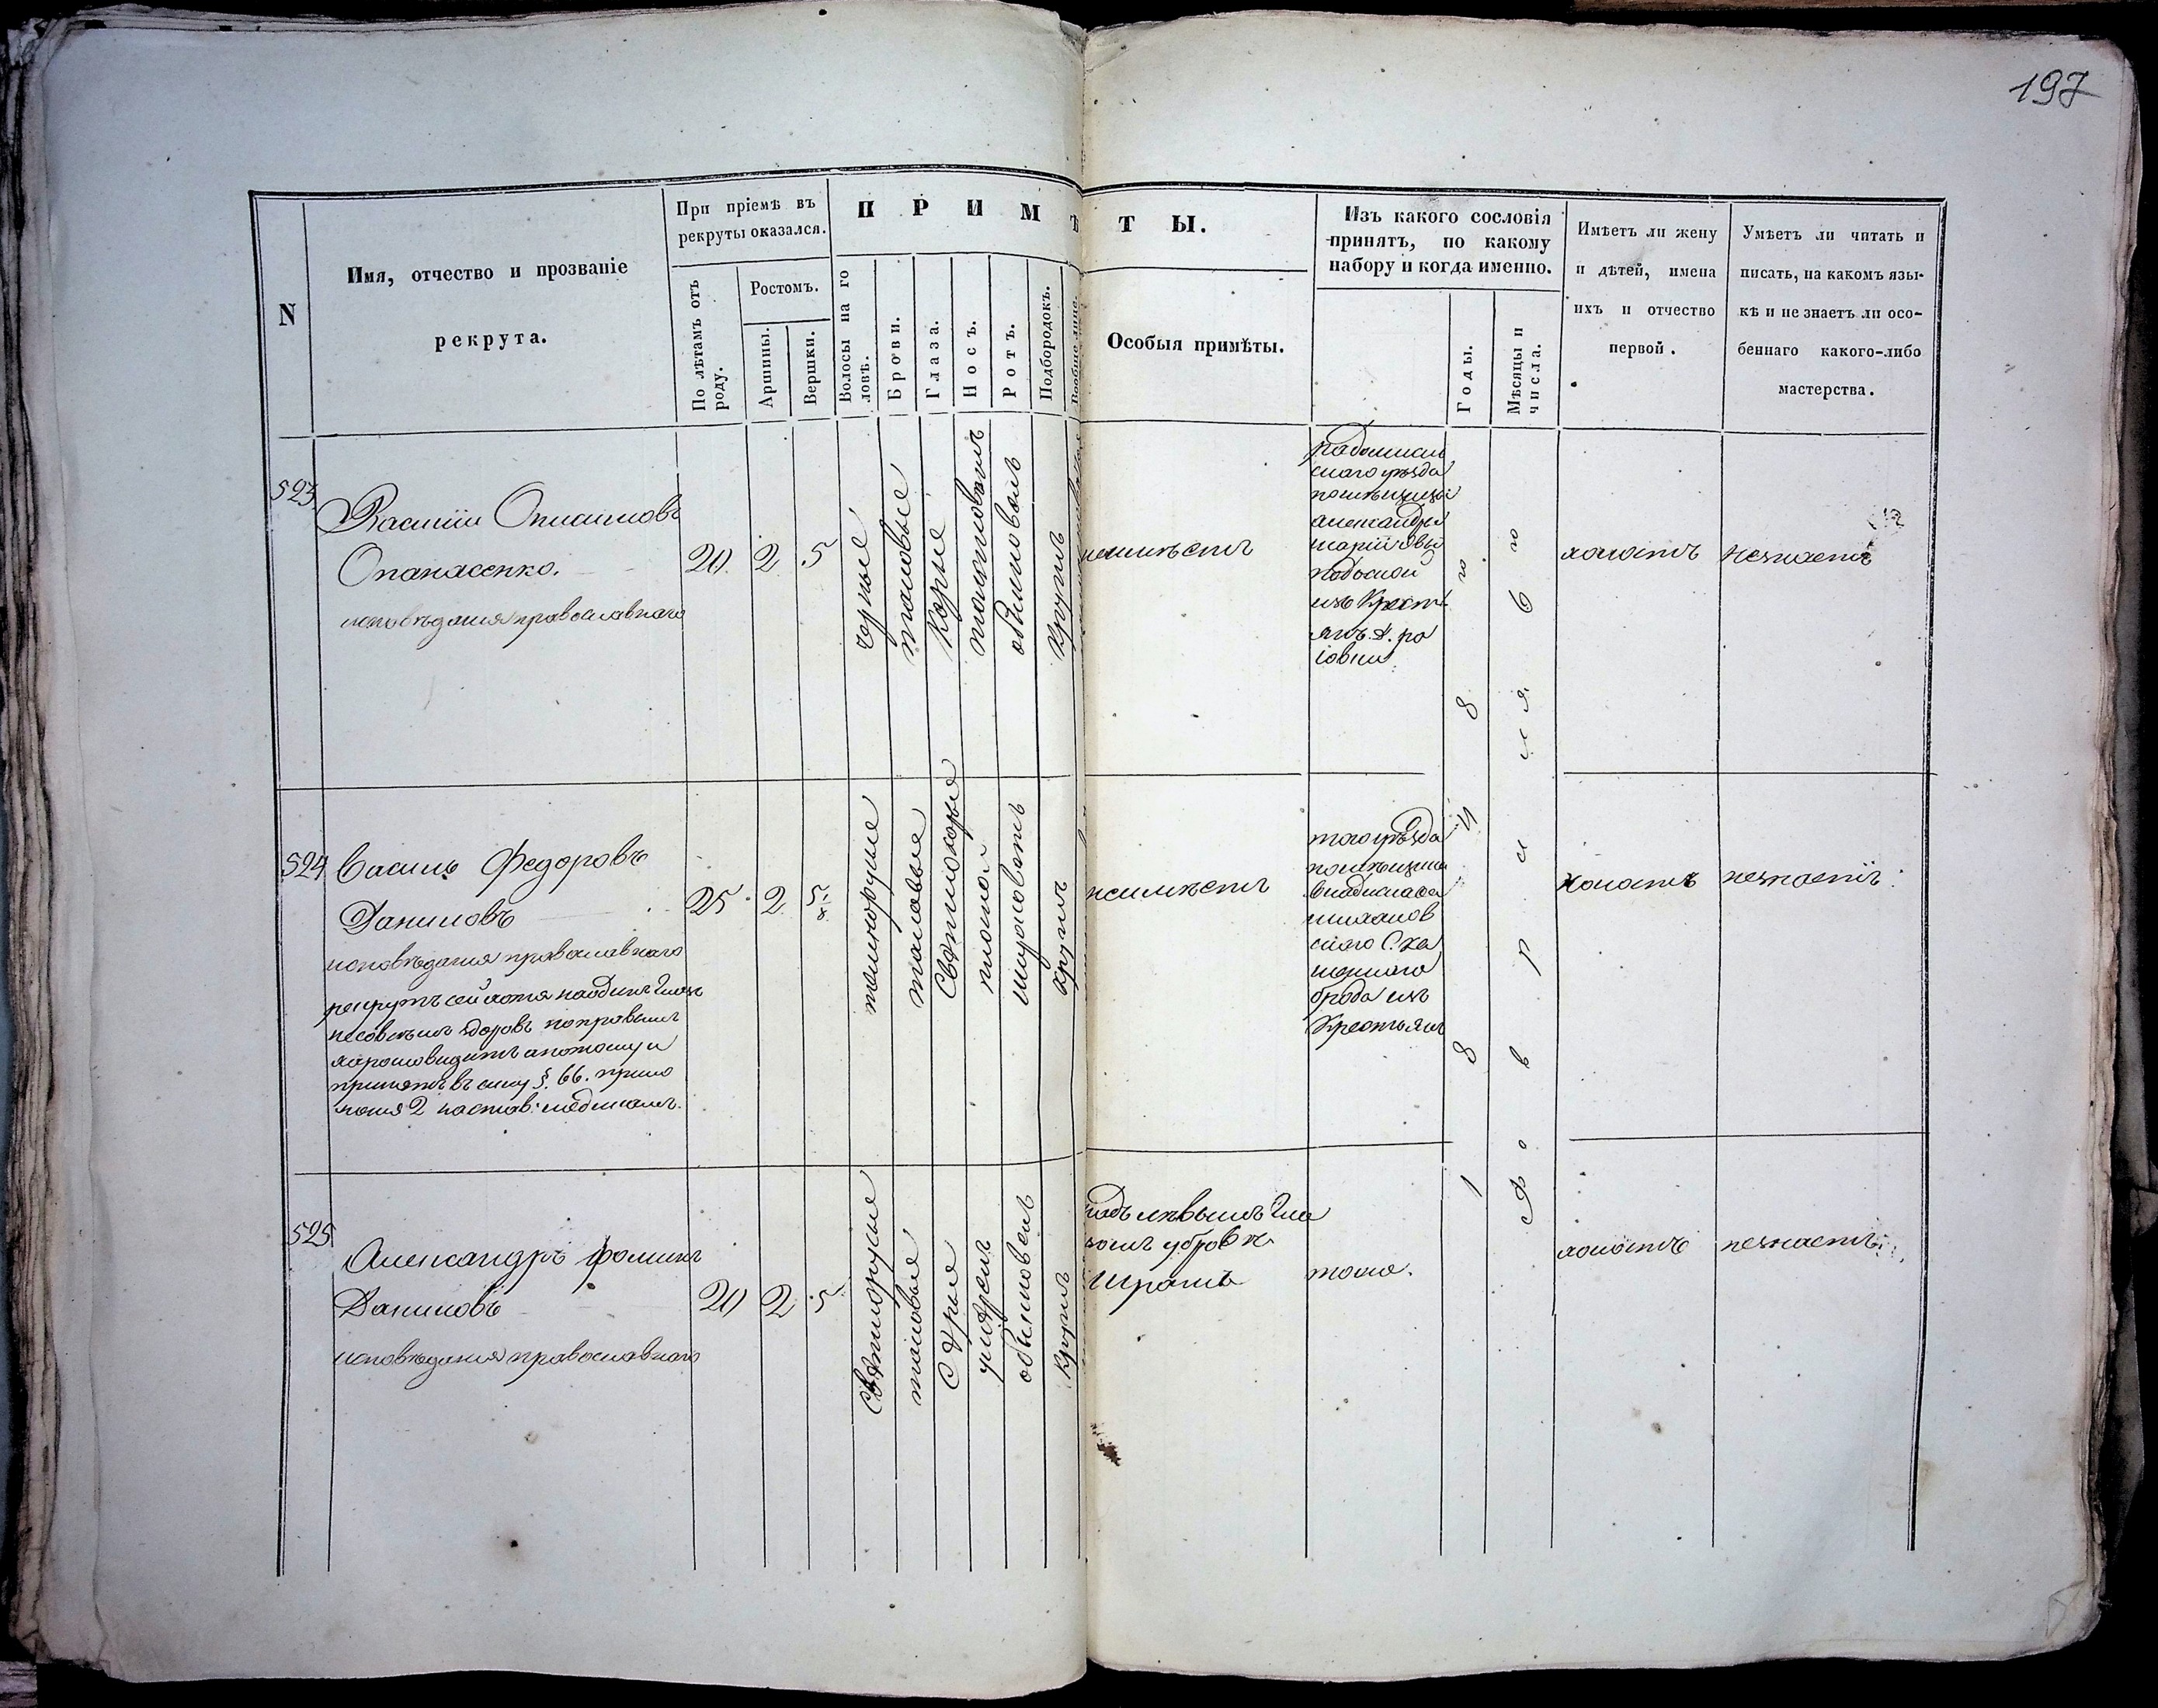 197
N
Имя, отчество и прозваніе
рекрута.
При пріемѣ въ
рекруты оказался.
По лѣтамъ отъ
роду.
Ростомъ.
Аршины.
Вершки.
ПРИМѢТЫ.
Волосы на го
ловѣ.
Брови.
Глаза.
Носъ.
Ротъ.
Подбородокъ.
Вообще лицо.
Особыя примѣты.
Изъ какого сословія
принятъ, по какому
набору и когда именно.
Годы.
Мѣсяцы и
числа.
Имѣетъ ли жену
и дѣтей, имена
ихъ и отчество
первой.
Умѣетъ ли читать и
писать, на какомъ язы-
кѣ и не знаетъ ли осо-
беннаго какого-либо
мастерства.
523
Опанасенко.
исповѣданія православнаго
20
2
5
черные
таковые
Карые
обыкновенъ
Круглъ
неимѣетъ
сказо уѣзда
помѣщицы
александры
изъ Крестъ
янъ
холостъ
незнаетъ
524
Василь Федоровъ
Даниловъ
исповѣданія православнаго
рекрутъ сей хотя наодинъ глазъ
несовсѣмъ здоровъ но правымъ
хорошо видитъ а потому и
принятъ въ силу §. 66. прило
женія 2 настав: медикамъ.
25
2
5 1/8
темнорусые
таковые
Светлокарые
круглъ
неимѣетъ
того уѣзда
помѣщика
владислава
брода изъ
Крестьянъ
холостъ
незнаетъ
525
Александръ фоминъ
Даниловъ
исповѣданія православнаго
20
2
5
Светлорусые
таковые
Серые
обыкновенъ
круглъ
надъ лѣвымъ гла
зомъ у брове
Шрамъ
тоже.
холостъ
незнаетъ
Февраля 6го